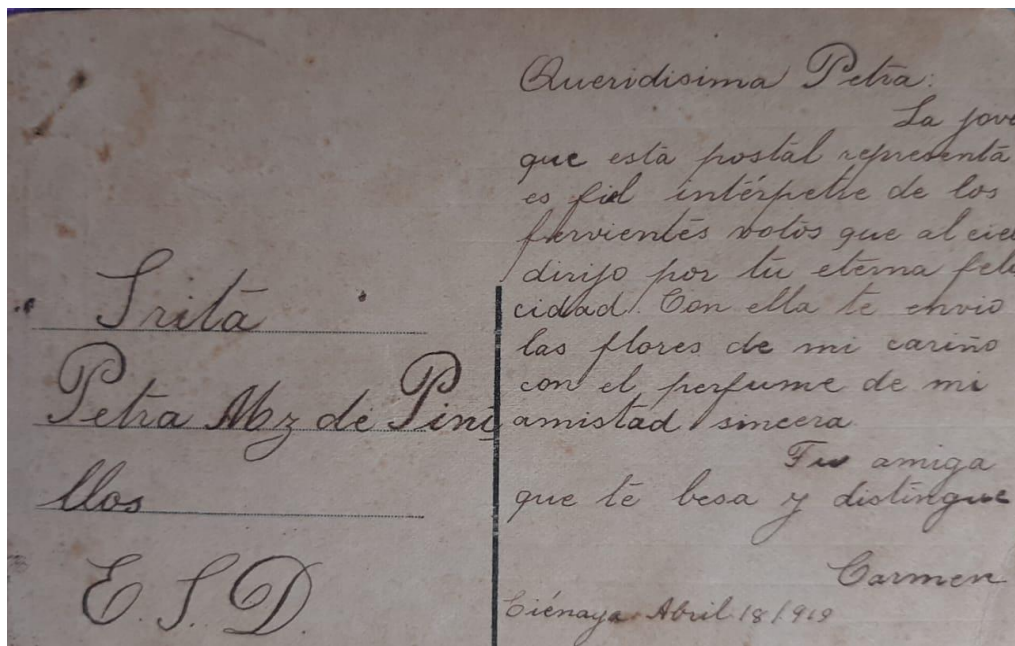 Srita
Petra Mz de Pini
llos
E. S. D.
Queridisima Petra:
La jove
que esta postal representa
es fiel intérpetre de los
fervientes votos que al ciel
dirijo por tu eterna feli
cidad. Con ella te envio
las flores de mi cariño
con el perfume de mi
amistad sincera
Tu amiga
que te besa y distingue
Carmen
Ciénaga Abril 18/919